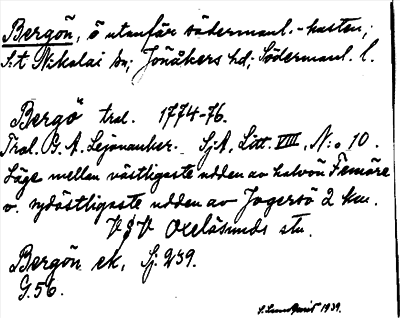 Bergön, ö utanför södermanl.-kusten;
S:t Nikolai sn; Jönåkers hd; Södermanl. l.
Bergö tral. 1774-76.
Tral. B. A. Lejonanker. SjA, Litt. VIII, N:o 10.
Läge mellan västligaste udden av halvön Femöre
o. sydöstligaste udden av Jogersö 2 km.
V § V Oxelösunds stn.
Bergön ek, Sj. 239.
G. 56.
S. Lundqvist 1939.